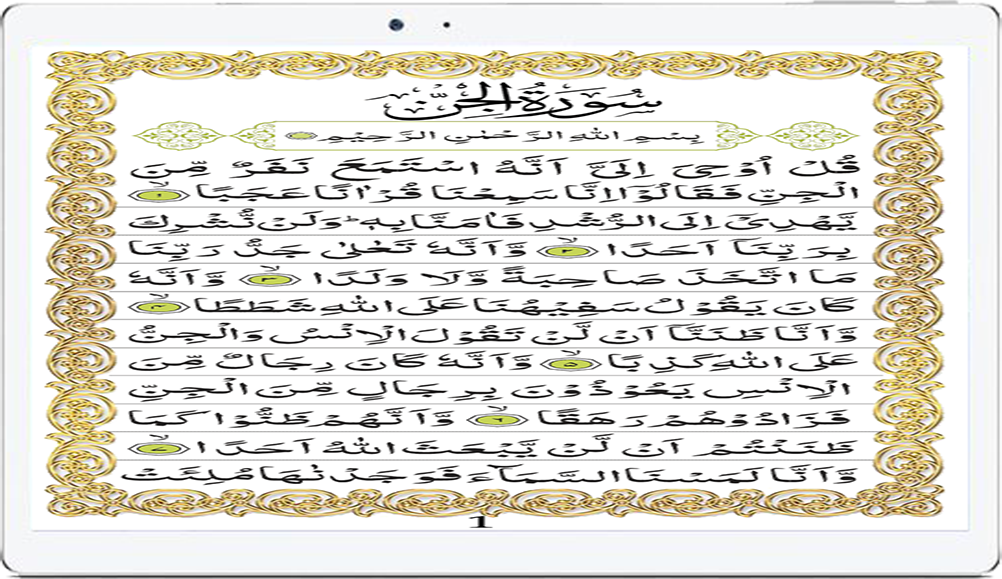 سُوْرَةُ الْجِنِّ
بِسْمِ اللهِ الرَّحْمٰنِ الرَّحِيْمِ
قُلْ اُوْحِیَ اِلَیَّ اَنَّهُ اسْتَمَعَ نَفَرٌ مِّنَ
الْجِنِّ فَقَالُوْۤا اِنَّا سَمِعْنَا قُرْاٰنًا عَجَبًا ۙ۱
یَّهْدِیْۤ اِلَی الرُّشْدِ فَاٰمَنَّا بِهٖ ؕ وَلَنْ نُّشْرِكَ
بِرَبِّنَاۤ اَحَدًا ۙ۲ وَّاَنَّهٗ تَعٰلٰی جَدُّ رَبِّنَا
مَا اتَّخَذَ صَاحِبَةً وَّلَا وَلَدًا ۙ۳ وَّاَنَّهٗ
كَانَ یَقُوْلُ سَفِیْهُنَا عَلَی اللهِ شَطَطًا ۙ۴
وَّاَنَّا ظَنَنَّاۤ اَنْ لَّنْ تَقُوْلَ الْاِنْسُ وَالْجِنُّ
عَلَی اللهِ كَذِبًا ۙ۵ وَّاَنَّهٗ كَانَ رِجَالٌ مِّنَ
الْاِنْسِ یَعُوْذُوْنَ بِرِجَالٍ مِّنَ الْجِنِّ
فَزَادُوْهُمْ رَهَقًا ۙ۶ وَّاَنَّهُمْ ظَنُّوْا كَمَا
ظَنَنْتُمْ اَنْ لَّنْ یَّبْعَثَ اللهُ اَحَدًا ۙ۷
وَّاَنَّا لَمَسْنَا السَّمَآءَ فَوَجَدْنٰهَا مُلِئَتْ
1